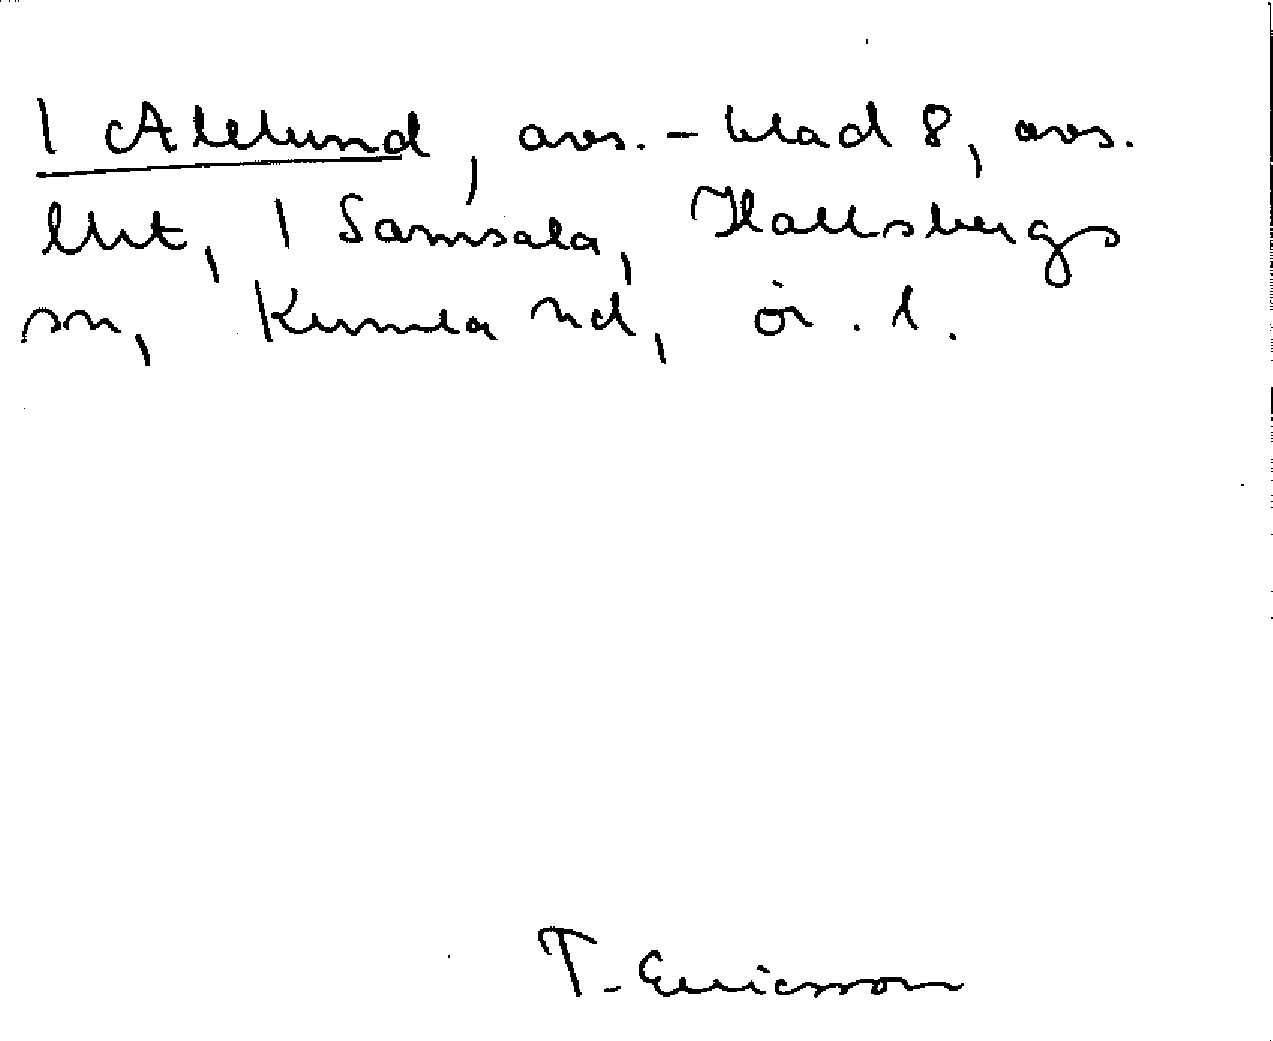 1 Alelund, avs. - blad 8, avs.
lht, 1 Samsala, Hallsbergs
sn, Kumla hd, ör. l.
T. Ericsson